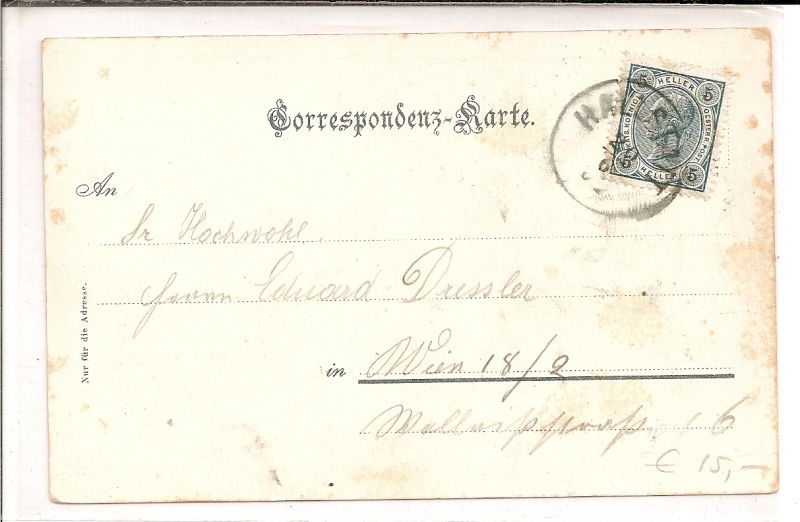 Correspondenz-Karte.
5 HELLER 5
OESTERR. POST
5 HELLER 5
HA
An
Sr Hochwohl.
Herrn Eduard Dressler
in Wien 18/2
6
€ 15,-
Nur für die Adresse.